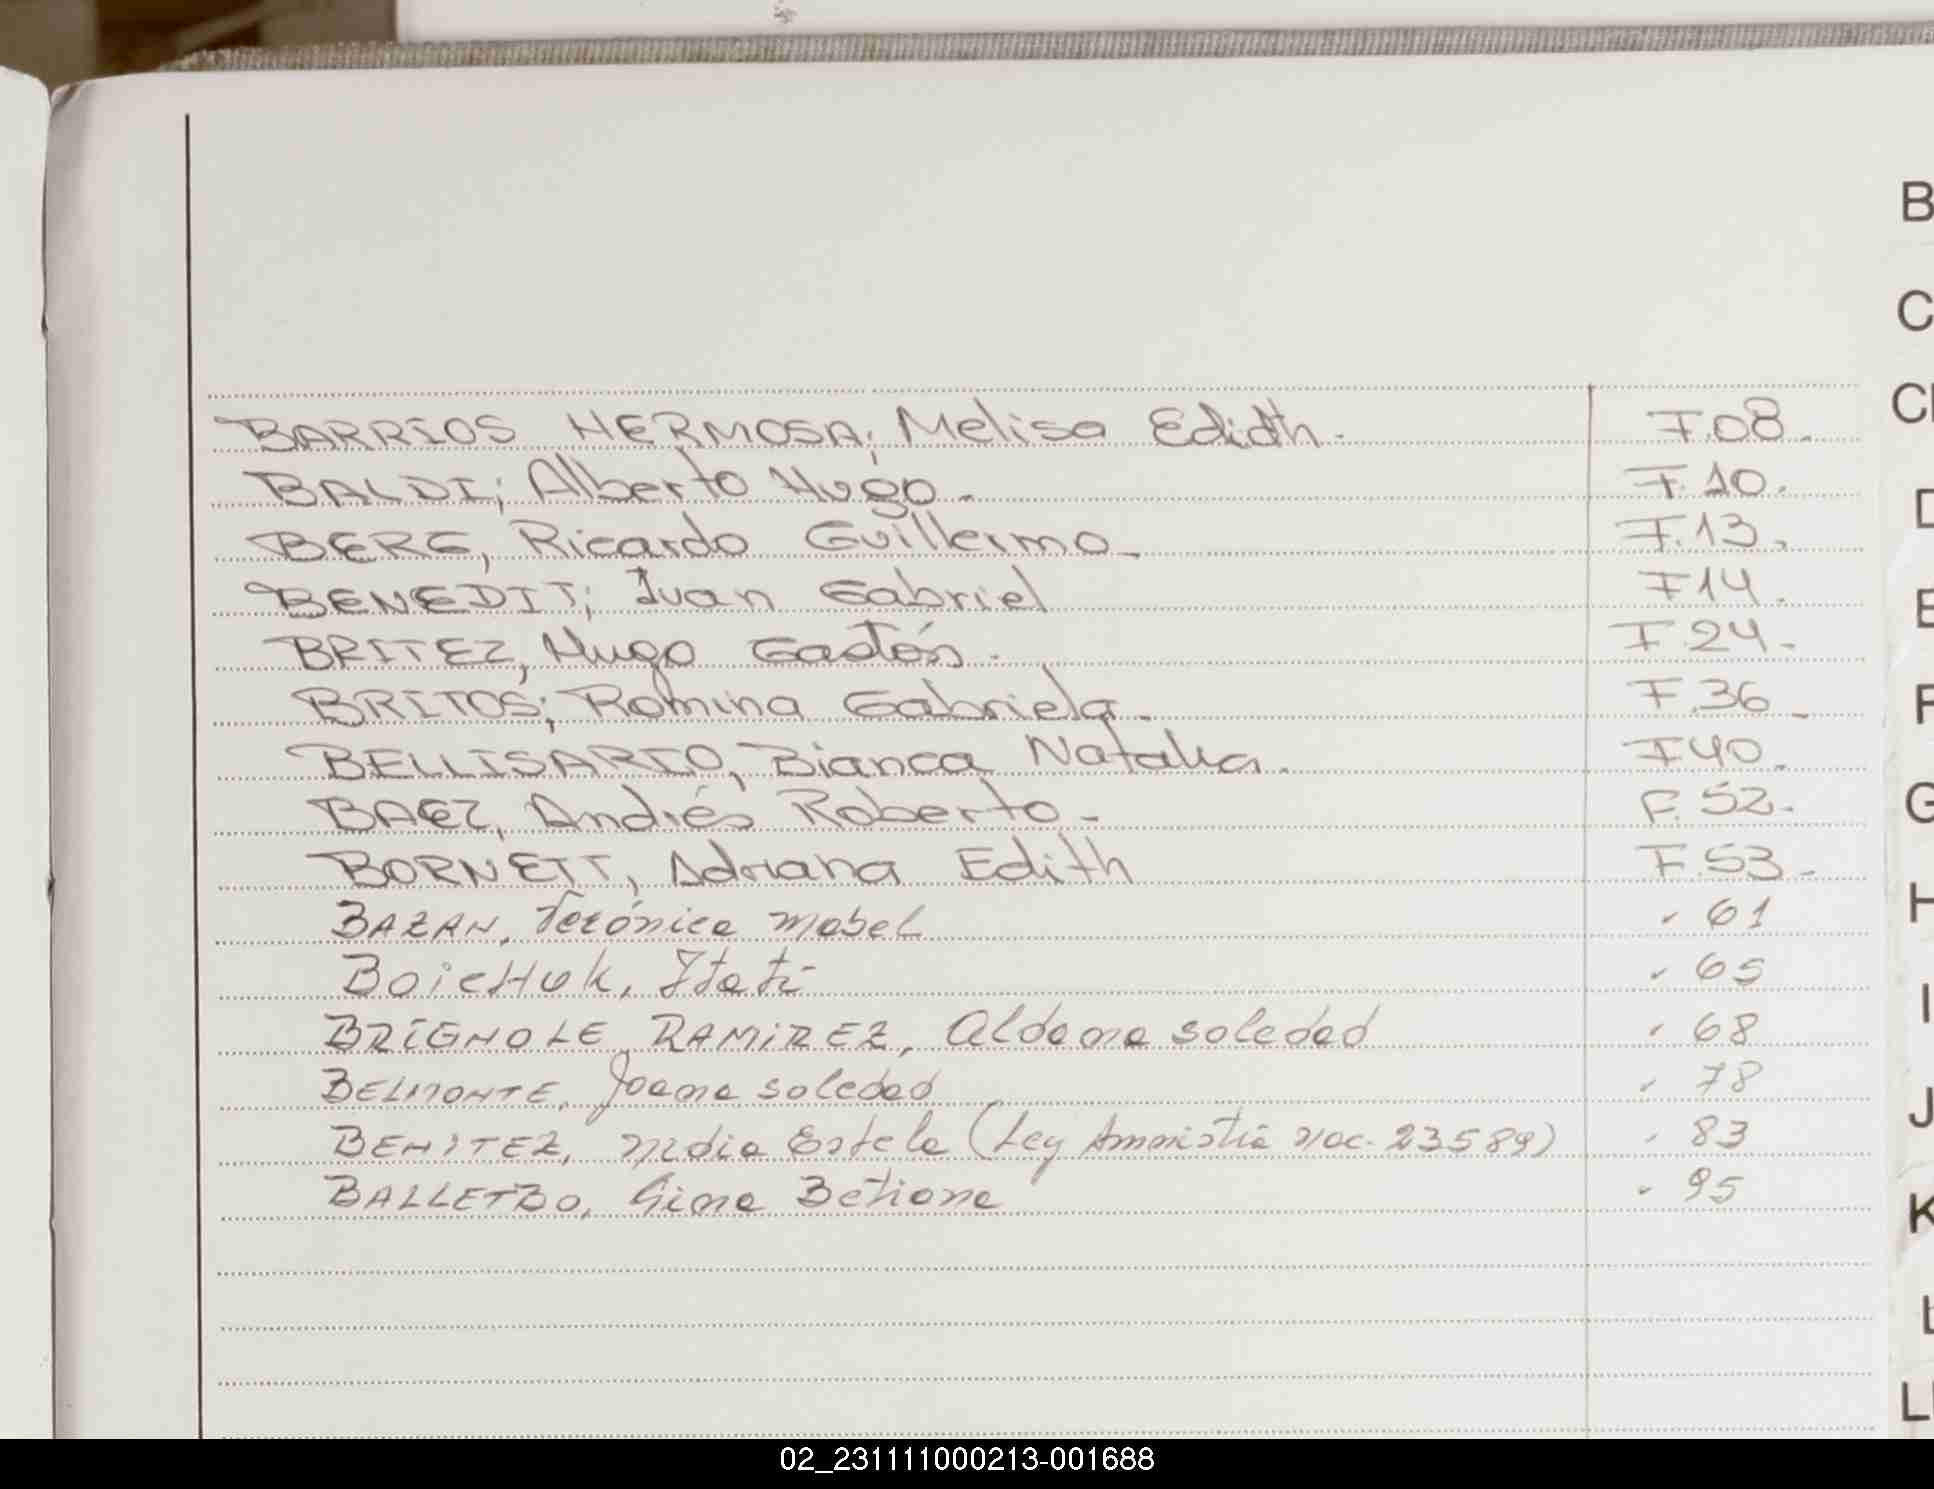 BARRIOS HERMOSA, Melisa Edith. F.08.
BALDI; Alberto Hugo. F.10.
BERG, Ricardo Guillermo_ F.13.
BENEDIT; Ivan Gabriel F14.
BRITEZ, Hugo Gastón. F.24-
BRITOS; Romina Gabriela. F.36_
BELLISARIO, Bianca Natalia. F40.
BAEZ, Andrés Roberto_ F.52.
BORNETT, Adriana Edith F.53_
BAZAN, Verónica Mabel 61
BoicHuk, Itatí 65
BRIGNOLE RAMIREZ, Aldana Soledad 68
BELMONTE, Joana Soledad 78
BENITEZ, Nidia Estela (Ley Amnistía Nac. 23589) 83
BALLETBO, Gina Betiana 95
B
C
D
E
F
G
H
I
J
K
L
02_231111000213-001688